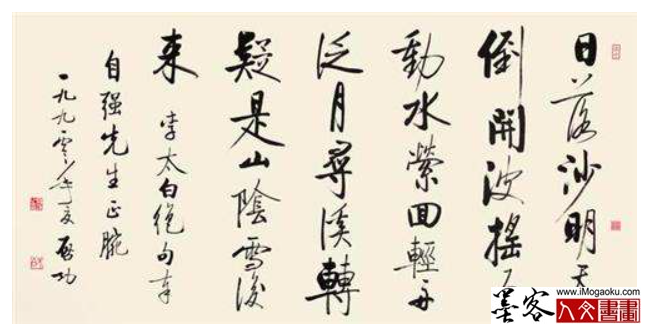 日落沙明天
倒開波搖石
動水縈回輕舟
泛月尋溪轉
疑是山陰雪後
来 李太白絕句奉
自强先生正腕
一九九零年夏 啟功
www.iMogaoku.com
墨客
人文書畫